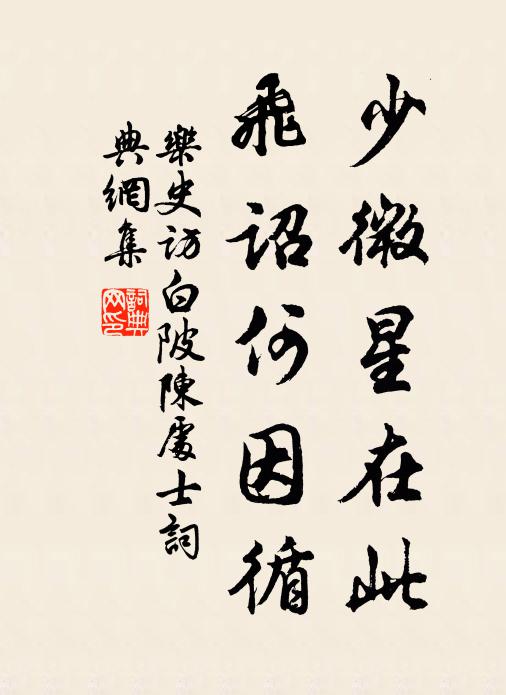 少微星在此
飛詔何因循
樂史訪白陂陳處士詞
典網集
詞典網印